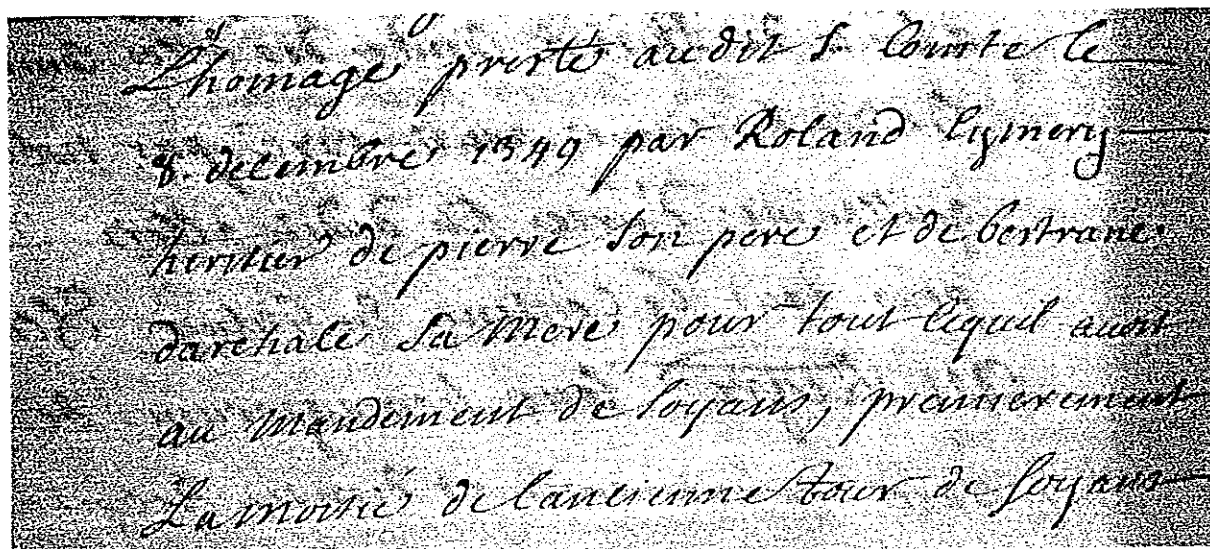 L'homage presté audit S. Comte le
8. decembre 1349 par Roland Eymery
heritier de pierre son pere et de bertrane
darchale sa Mere pour tout cequil avoit
au Mandement de Soyans, premierement
La moitié de l'ancienne tour de Soyans